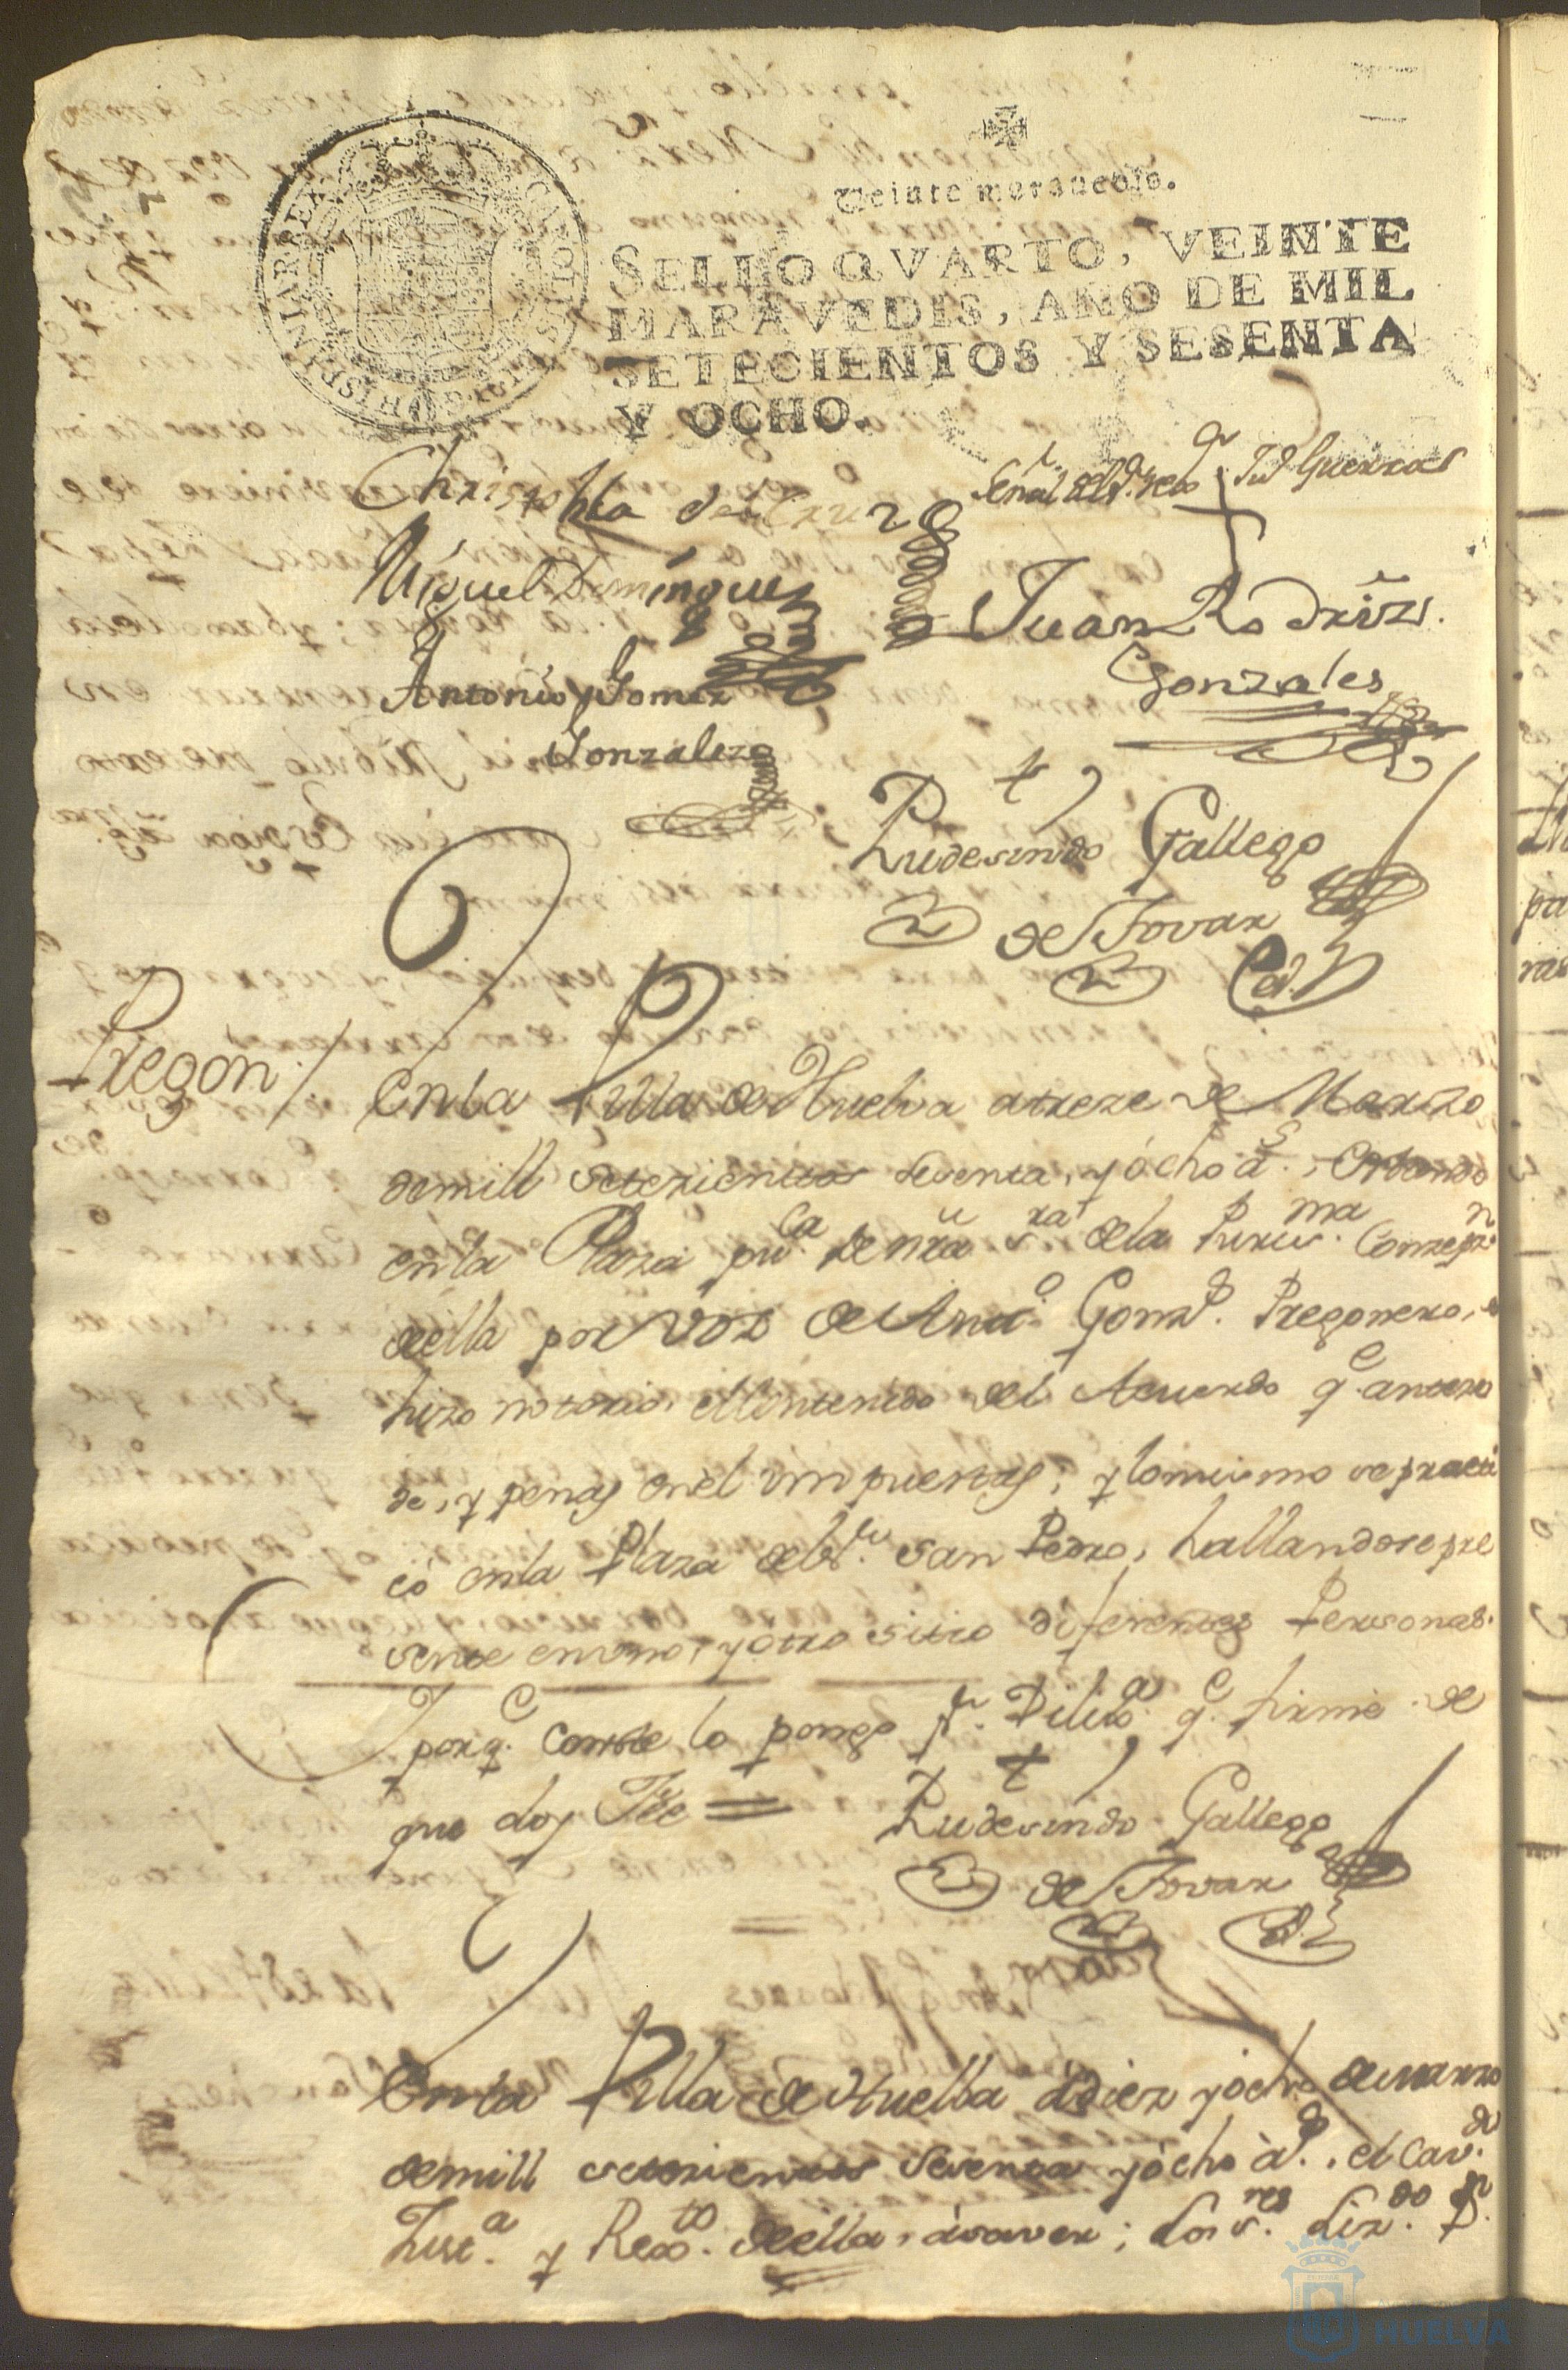 Veinte maravedis.
SELLO QVARTO, VEINTE
MARAVEDIS, AÑO DE MIL
SETECIENTOS Y SESENTA
Y OCHO.
HISPANIAR REX
Miguel Dominguez
Juan Rodrigz.
Gonzales
Antonio Gomez
Gonzalez
Rudesindo Gallego
de Tovar
Pregon.
En la Villa de Huelva a treze de Marzo
de mill setezientos sesenta, y ócho as. Estando
en la Plaza puca. de nra sra. de la Purisma. Conzepn.
de ella por voz de Anto. Gonz. Pregonero, se
hizo notorio, el contenido del Acuerdo qe. anteze
de, y penas en el impuestas; y lo mismo se practi
có en la Plaza del Sr. San Pedro, hallandose pre
sente en uno, y otro sitio diferentes Personas.
Y porqe. Conste lo pongo pr. Diliza. qe. firmé de
que doy Fee =
Rudesindo Gallego
de Tovar
En la Villa de Huelba á diez y ócho de marzo
de mill setezientos sesenta y ócho as. el Cavdo.
Justa. y Rexto. de ella, á saver; los sres. Lizdo. Dn.
HUELVA